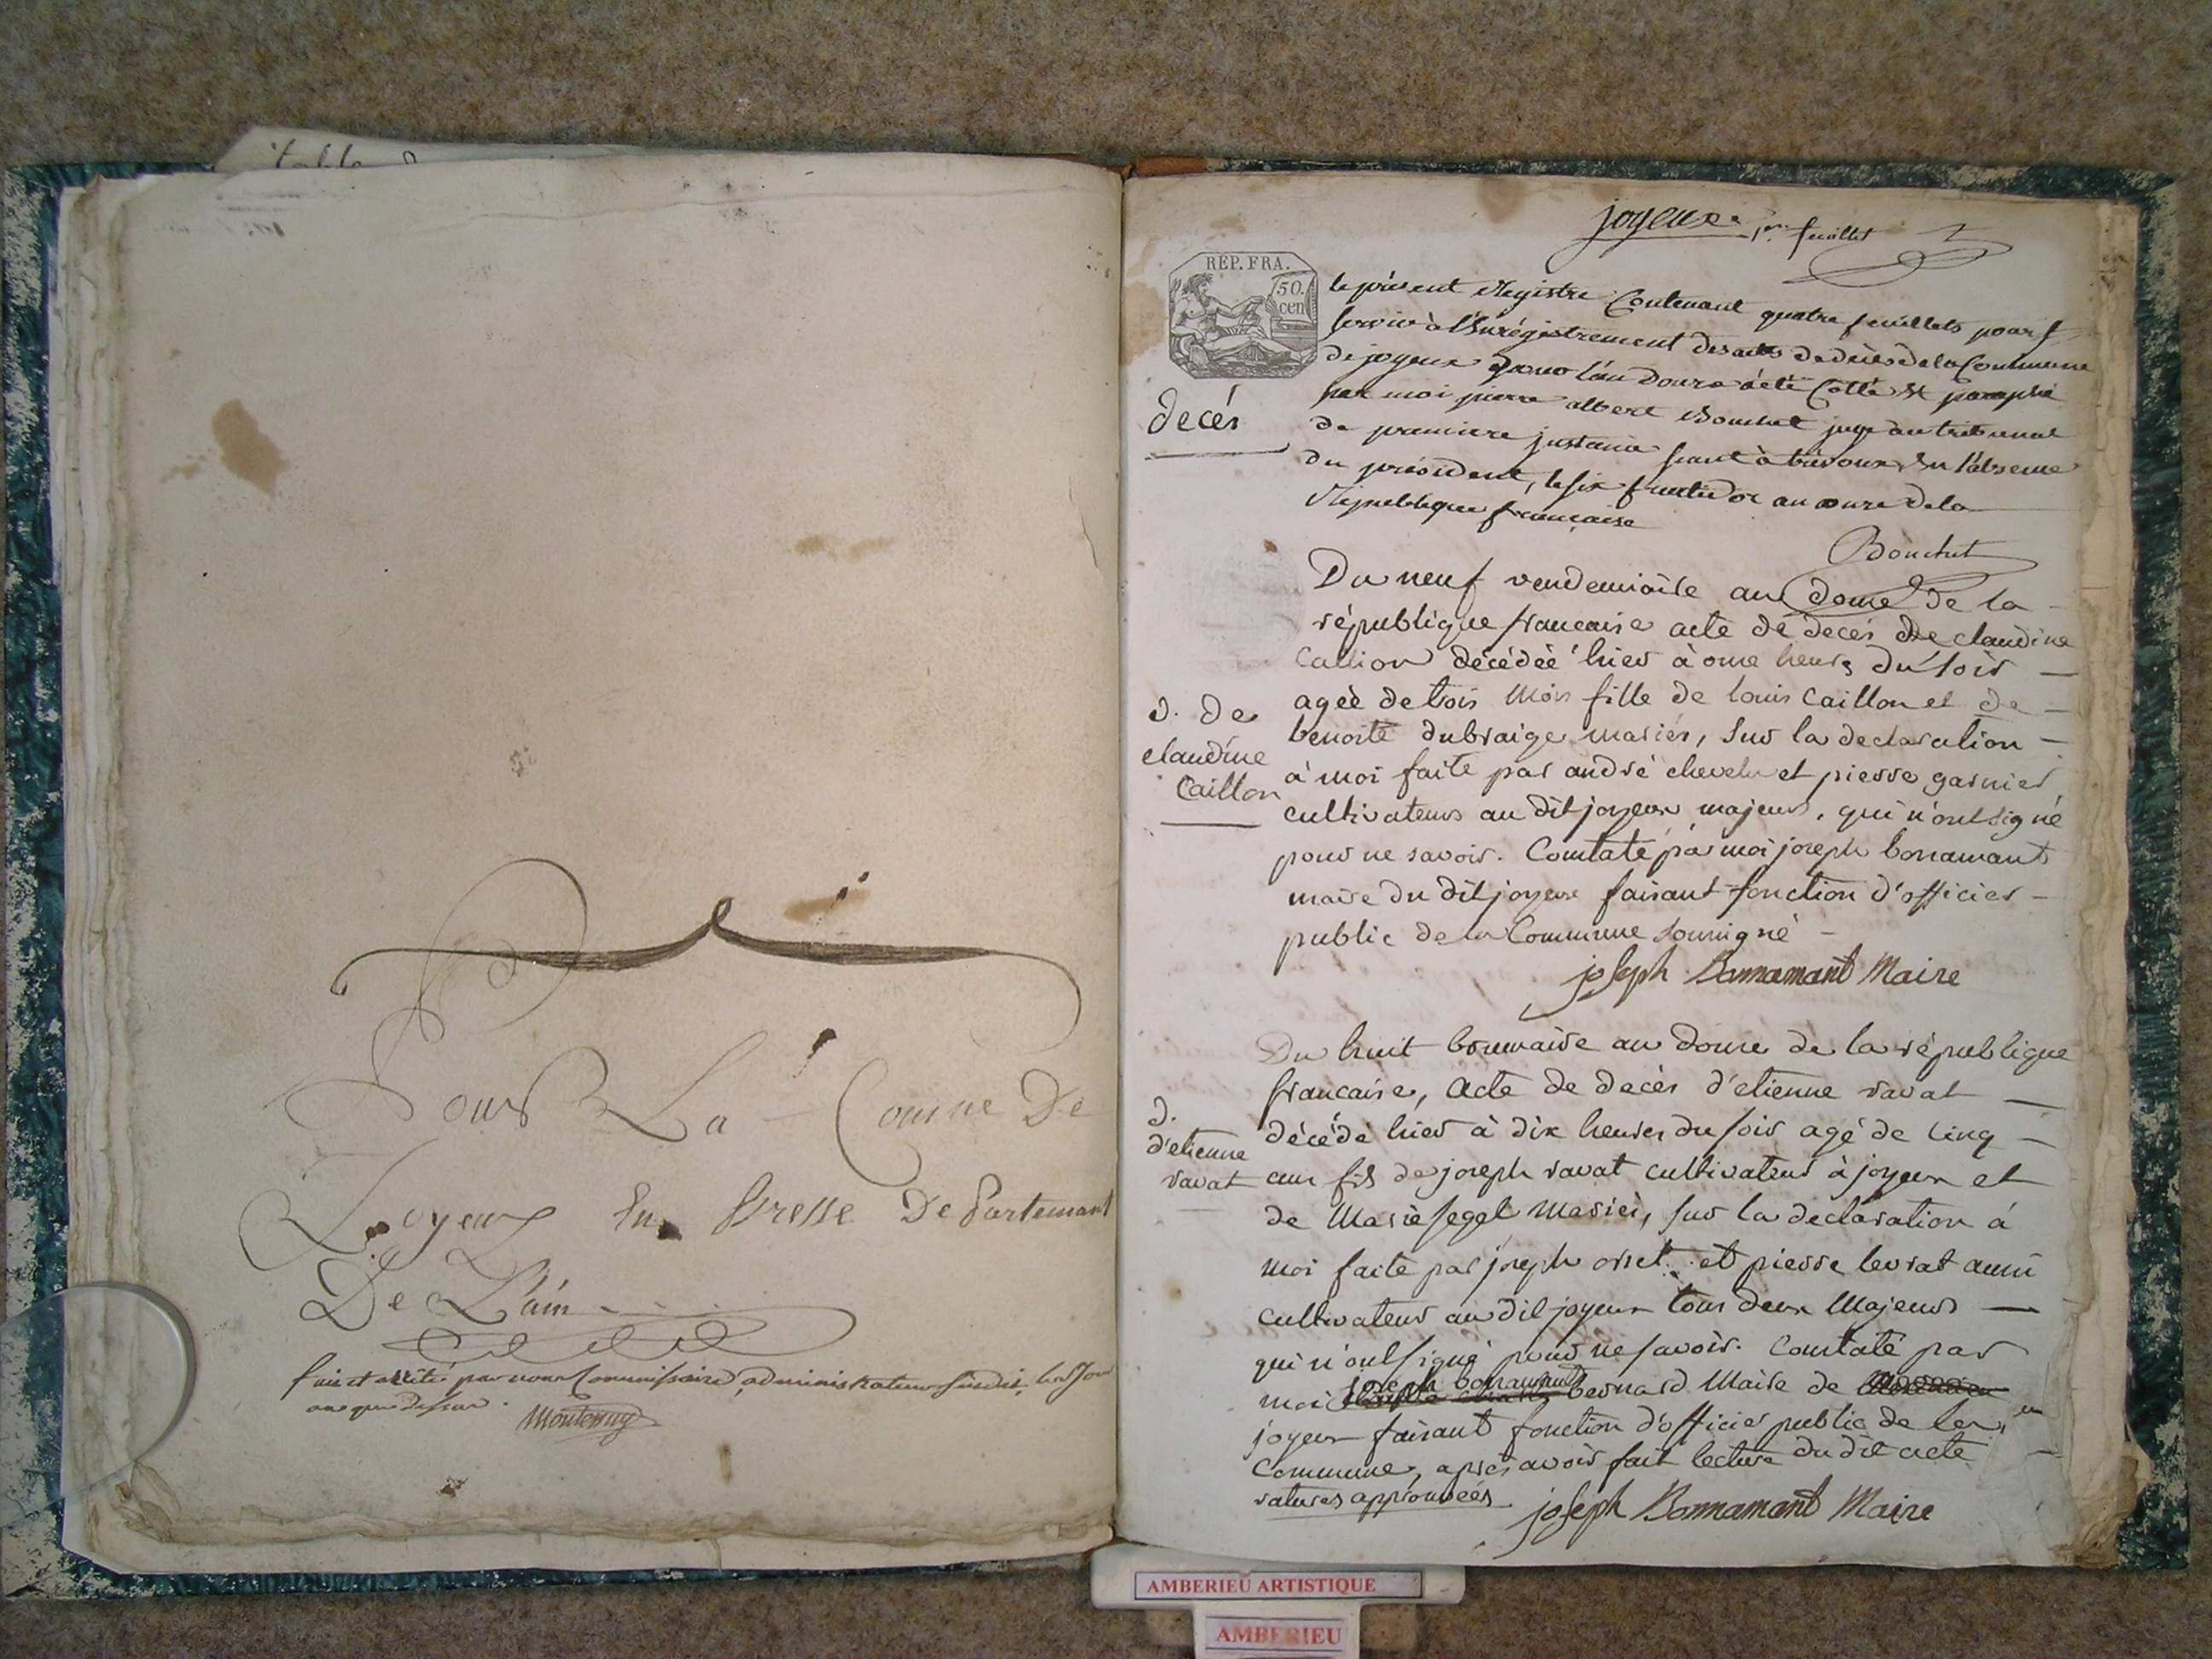 table
Pour La Comune De
Joyeux En Bresse Departemant
De L'ain
fait et arrêté par nous Commissaire administrateur susdit, les Jour
an que dessus.
Montemuy
joyeux 1er feuillet
REP. FRA.
50.
cen
le présent Registre Contenant quatre feuillets pour
servir à l'Enrégistrement des actes de décès de la Commune
de joyeux pour l'an douze a été Cotté et paraphé
par moi pierre albert Bouchet juge au tribunal
de premiere justance séant à trévoux En l'absence
du président, le six fructidor an onze de la
République française
Bouchet
decés
Du neuf vendemiaire an douze de la
république francaise acte de decés de claudine
Caillon décédéé hier à onze heures du soir
ageè de trois mois fille de louis Caillon et de
benoite dubraige mariés, sur la declaration
à moi faite par andré chevelu et pierre garnier
cultivateurs au dit joyeux majeurs, qui n'ont signé
pour ne savoir. Constaté par moi joseph bonamant
maire du dit joyeux faisant fonction d'officier
public de la Commune soussigné
joseph Bonnamant Maire
D. De
claudine
Caillon
Du huit brumaire an douze de la république
francaise, acte de decès d'etienne ravat
décédé hier à dix heures du soir agé de cinq
ans fils de joseph ravat cultivateur à joyeux et
de Marie segel mariés, sur la declaration à
moi faite par joseph orset et pierre levrat aussi
cultivateurs au dit joyeux tous deux Majeurs
qui n'ont signé pour ne savoir. Constaté par
moi joseph bonamant bernard Maire de
joyeux faisant fonction d'officier public de la
Commune, après avoir fait lecture du dit acte
ratures approuvéés
joseph Bonnamant Maire
D.
d'etienne
ravat
AMBERIEU ARTISTIQUE
AMBERIEU